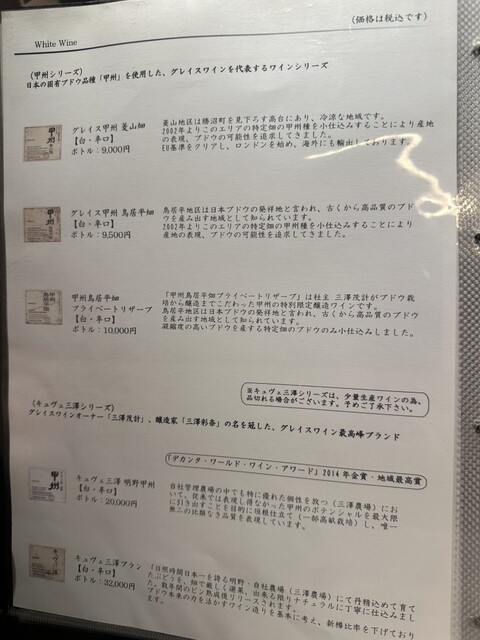 (価格は税込です)
White Wine
(甲州シリーズ)
日本の固有ブドウ品種「甲州」を使用した、グレイスワインを代表するワインシリーズ
グレイス甲州 菱山畑
【白・辛口】
ボトル：9,000円
菱山地区は勝沼町を見下ろす高台にあり、冷涼な地域です。
2002年よりこのエリアの特定畑の甲州種を小仕込みすることにより産地
の表現、ブドウの可能性を追求してきました。
EU基準をクリアし、ロンドンを始め、海外にも輸出しております。
グレイス甲州 鳥居平畑
【白・辛口】
ボトル：9,500円
鳥居平地区は日本ブドウの発祥地と言われ、古くから高品質のブ
ドウを産み出す地域として知られています。
2002年よりこのエリアの特定畑の甲州種を小仕込みすることにより
産地の表現、ブドウの可能性を追求してきました。
甲州鳥居平畑
プライベートリザーブ
【白・辛口】
ボトル：10,000円
「甲州鳥居平畑プライベートリザーブ」は社主 三澤茂計がブドウ栽
培から醸造までこだわった甲州の特別限定醸造ワインです。
鳥居平地区は日本ブドウの発祥地と言われ、古くから高品質のブドウ
を産み出す地域として知られています。
凝縮度の高いブドウを産する特定畑のブドウのみ小仕込みしました。
※キュヴェ三澤シリーズは、少量生産ワインの為、
品切れる場合がございます。予めご了承下さい。
(キュヴェ三澤シリーズ)
グレイスワインオーナー「三澤茂計」、醸造家「三澤彩奈」の名を冠した、グレイスワイン最高峰ブランド
「デカンタ・ワールド・ワイン・アワード」2014年金賞・地域最高賞
甲州
キュヴェ三澤 明野甲州
【白・辛口】
ボトル：20,000円
自社管理農場の中でも特に優れた個性を放つ(三澤農場)にお
いて、従来では表現し得なかった甲州のポテンシャルを最大限
に引き出すことを目的に垣根仕立て(一部高畝栽培)し、唯一
無二の比類なき品質を表現しています。
キュヴェ三澤ブラン
【白・辛口】
ボトル：32,000円
(日照時間日本一を誇る明野・自社農場(三澤農場)にて丹精込めて育て
たぶどうを、畑で厳しく選果、出来る限りナチュラルに丁寧に仕込みまし
た。数年間のビン熟成後リリースされます。
ブドウ本来の力を活かすワイン造りを基本に考え、新樽比率を下げており
ます。